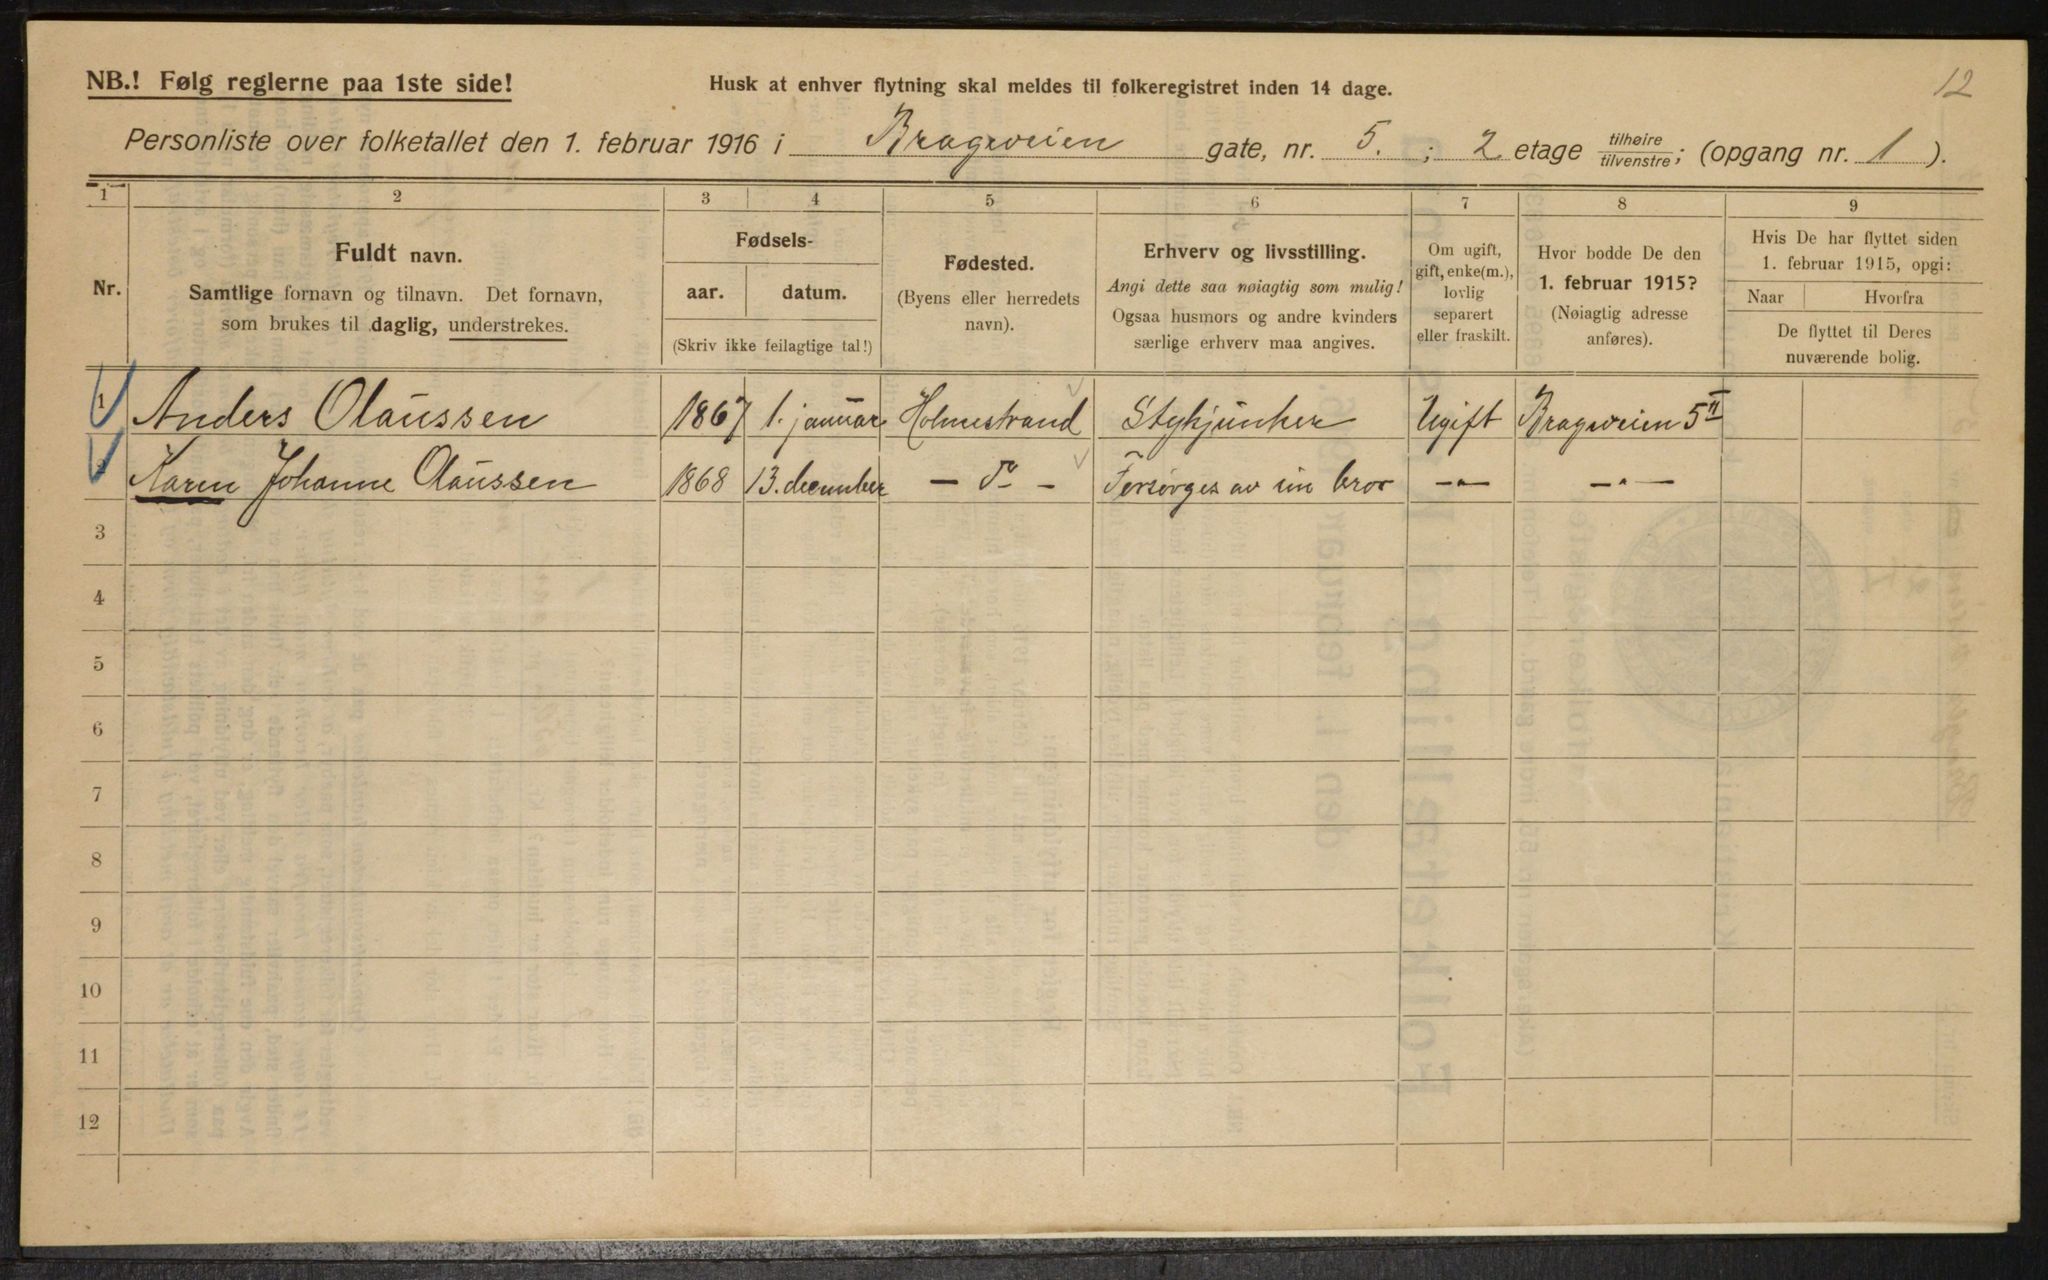 12
NB.! Følg reglerne paa 1ste side!
Husk at enhver flytning skal meldes til folkeregistret inden 14 dage.
Personliste over folketallet den 1. februar 1916 i Brageveien gate, nr. 5. ; 2 etage tilhøire/tilvenstre; (opgang nr. 1 ).
1 2 3 4 5 6 7 8 9
Nr.
Fuldt navn.
Samtlige fornavn og tilnavn. Det fornavn,
som brukes til daglig, understrekes.
Fødsels-
aar. datum.
(Skriv ikke feilagtige tal!)
Fødested.
(Byens eller herredets
navn).
Erhverv og livsstilling.
Angi dette saa nøiagtig som mulig!
Ogsaa husmors og andre kvinders
særlige erhverv maa angives.
Om ugift,
gift, enke(m.),
lovlig
separert
eller fraskilt.
Hvor bodde De den
1. februar 1915?
(Nøiagtig adresse
anføres).
Hvis De har flyttet siden
1. februar 1915, opgi:
Naar Hvorfra
De flyttet til Deres
nuværende bolig.
1 Anders Olaussen 1867 1. januar Holmestrand Stykjunker Ugift Brageveien 5 II
2 Karen Johanne Olaussen 1868 13. december — Do — Forsørges av sin bror —"— —"—
3
4
5
6
7
8
9
10
11
12